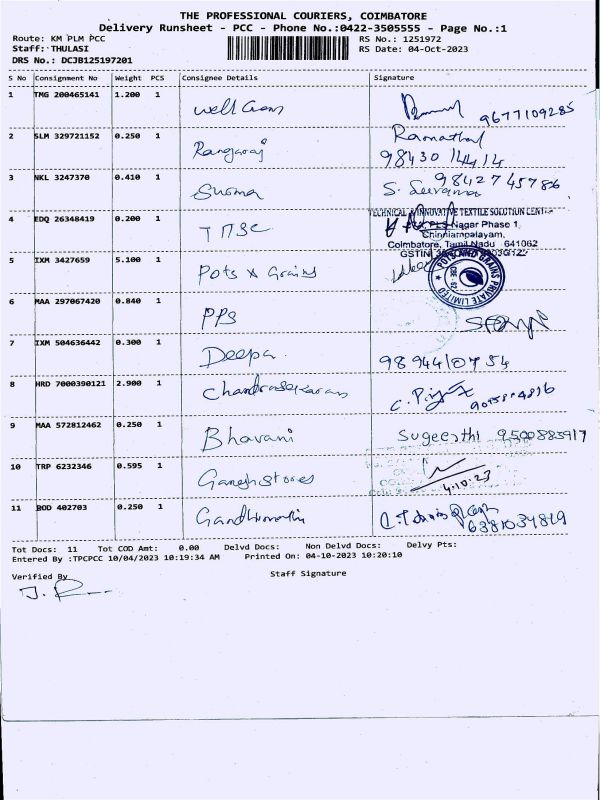 THE PROFESSIONAL COURIERS, COIMBATORE
Delivery Runsheet - PCC - Phone No.:0422-3505555 - Page No.:1
Route: KM PLM PCC
RS No.: 1251972
Staff: THULASI
RS Date: 04-Oct-2023
DRS No.: DCJB125197201
S No Consignment No Weight PCS Consignee Details Signature
1 TMG 200465141 1.200 1 Well
9677109285
2 SLM 329721152 0.250 1 Rangaraj
98430 14414
3 NKL 3247370 0.410 1
9842745786
4 EDQ 26348419 0.200 1 TITSC
TECHNICAL & INNOVATIVE TEXTILE SOLUTION CENTRE
Nagar Phase 1,
Chinniampalayam,
Coimbatore, Tamil Nadu 641062
GSTIN
5 IXM 3427659 5.100 1 Pots & Grains
POTS AND GRAINS PRIVATE LIMITED
CBE-62
6 MAA 297067420 0.840 1 PPS
7 IXM 504636442 0.300 1 Deepa
98944 10754
8 HRD 7000390121 2.900 1 Chandrasekaran
9 MAA 572812462 0.250 1 Bhavani
9500883917
10 TRP 6232346 0.595 1 Ganesh Stores
4.10.23
11 BOD 402703 0.250 1 Gandhimathi
6381034819
Tot Docs: 11 Tot COD Amt: 0.00 Delvd Docs: Non Delvd Docs: Delvy Pts:
Entered By :TPCPCC 10/04/2023 10:19:34 AM Printed On: 04-10-2023 10:20:10
Verified By
Staff Signature